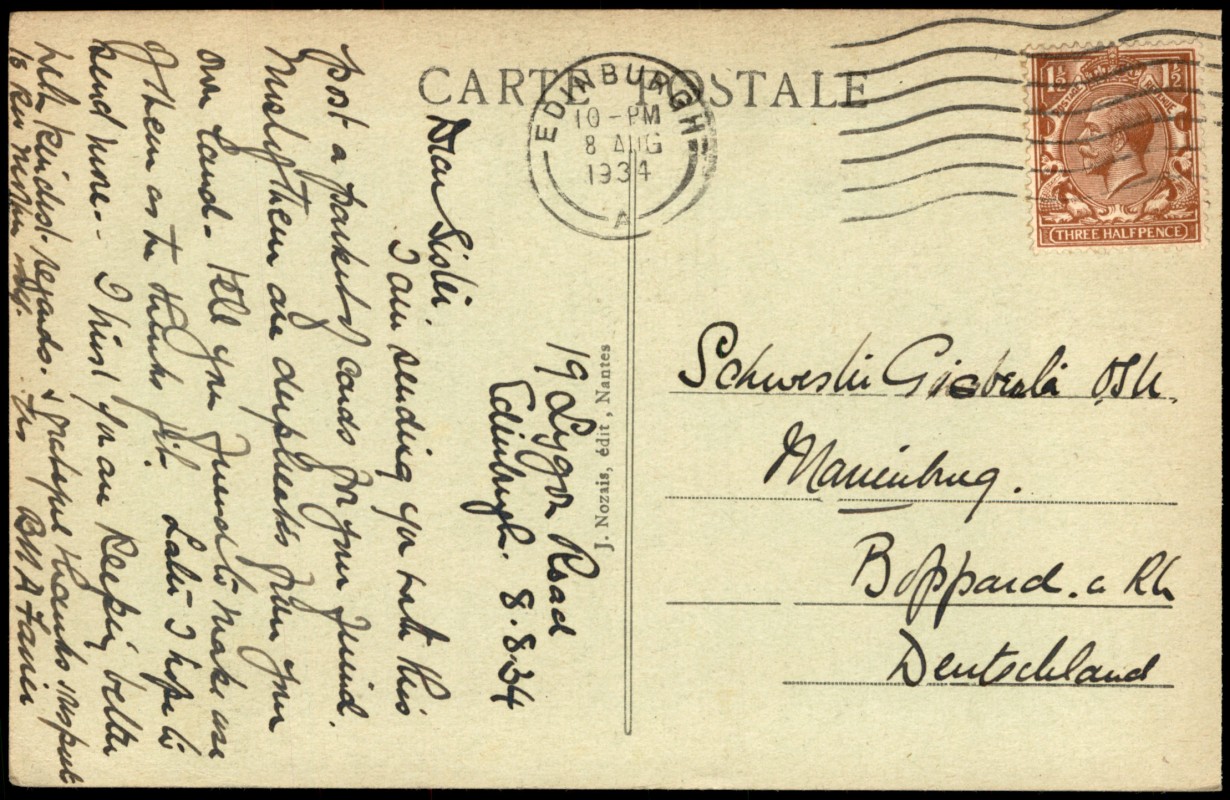 CARTE POSTALE
EDINBURGH
10-PM
8 AUG
1934
A
1½ 1½
POSTAGE REVENUE
THREE HALFPENCE
J. Nozais, édit, Nantes
19 Lygon Road
Edinburgh. 8.8.34
Dear Sister.
I am sending you with this
post a packet of cards for your friend.
Mostly them are duplicates from your
own land - tell your friend to make use
of them as he thinks fit. Later I hope to
send more - I trust you are keeping better
with kindest regards & grateful thanks & respect
to Rev Mother
Schwester
Marienburg.
Boppard. a Rh
Deutschland